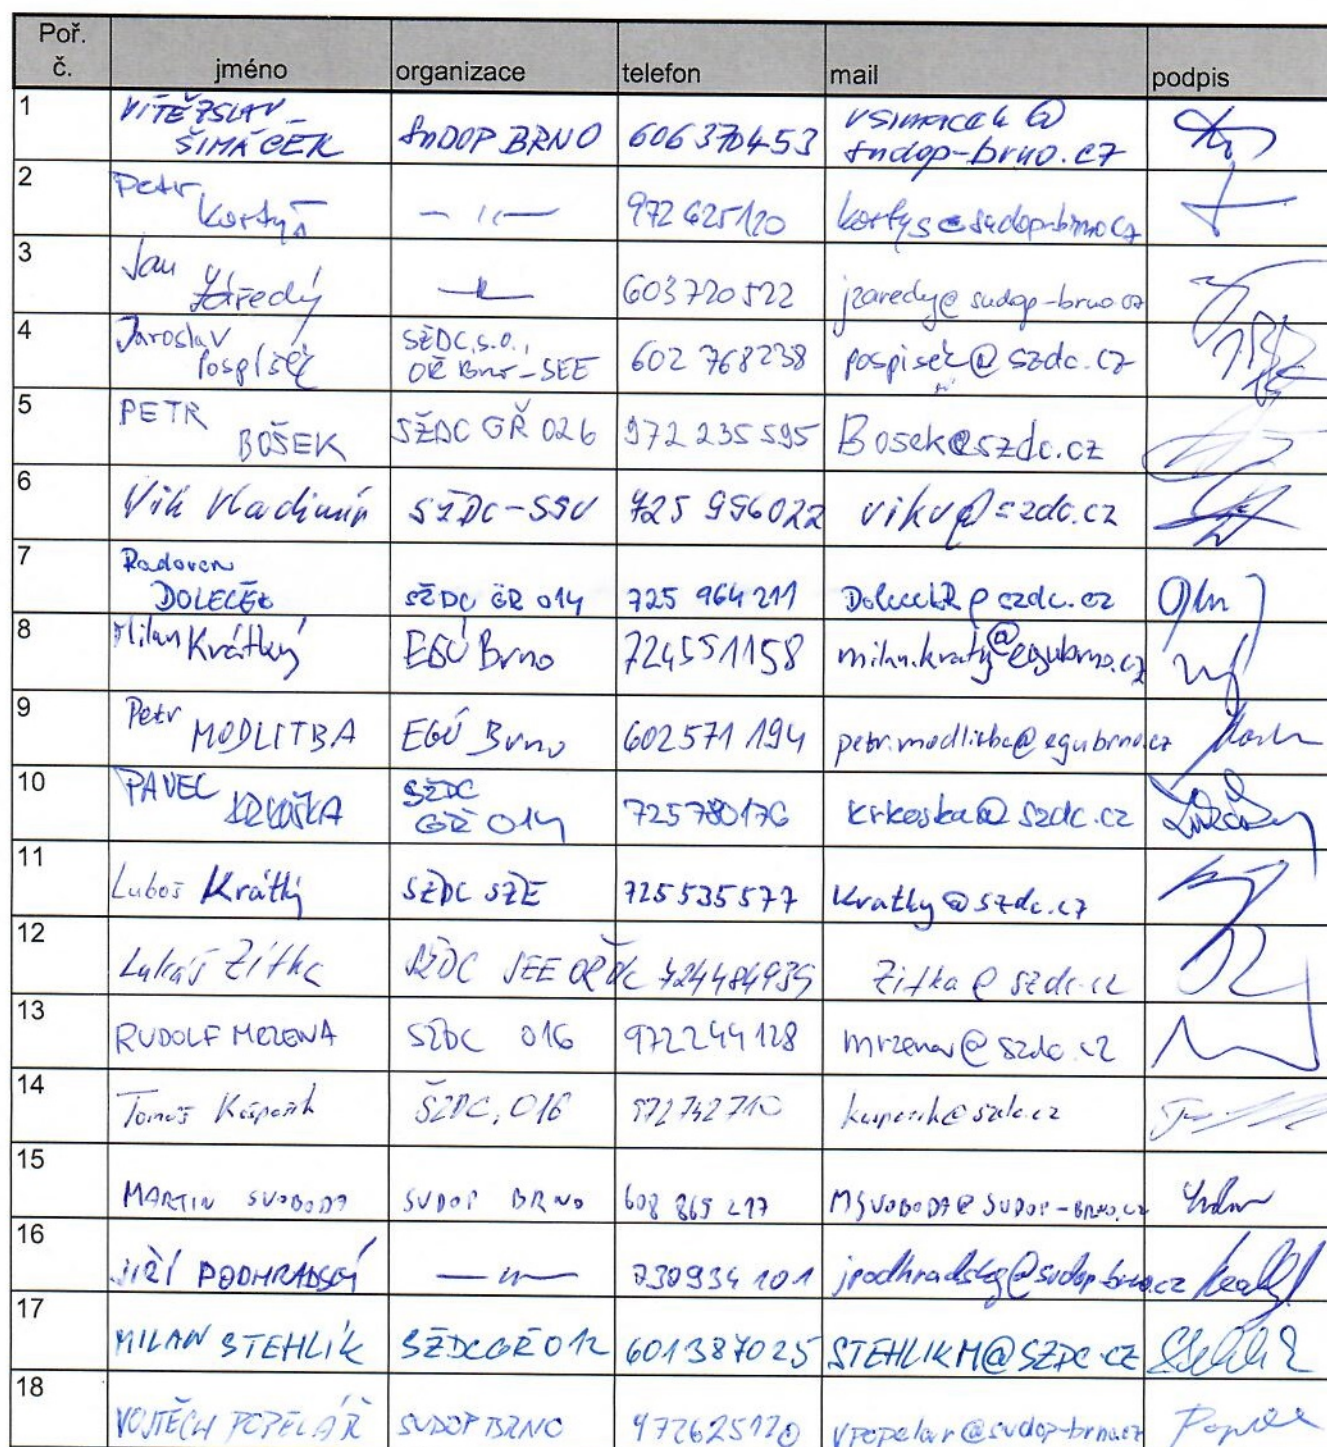 Poř. č. jméno organizace telefon mail podpis
1 VÍTĚZSLAV ŠIMÁČEK SUDOP BRNO 606370453 vsimacek@sudop-brno.cz
2 Petr Kortyš — " — 972 625120 kortys@sudop-brno.cz
3 Jan Zářecký — " — 603720522 jzarecky@sudop-brno.cz
4 Jaroslav SŽDC, s.o., OŘ Brno-SEE 602 768238 @szdc.cz
5 PETR BOŠEK SŽDC GŘ 026 972 235 595 Bosek@szdc.cz
6 Vik Vladimír SŽDC-SSV 725 996022 vikv@szdc.cz
7 Radovan DOLEČEK SŽDC GŘ 014 725 964 211 DolecekR@szdc.cz
8 Milan Krátký EGÚ Brno 724551158 milan.kratky@egubrno.cz
9 Petr MODLITBA EGÚ Brno 602571 194 petr.modlitba@egubrno.cz
10 PAVEL KRKOŠKA SŽDC GŘ 014 725780176 krkoska@szdc.cz
11 Luboš Krátký SŽDC SŽE 725535577 Kratky@szdc.cz
12 Lukáš Zítka SŽDC SEE 724484939 Zitka@szdc.cz
13 RUDOLF MRZENA SŽDC 016 972244128 mrzena@szdc.cz
14 Tomáš Kašpařík SŽDC, 016 972742710 kasparik@szdc.cz
15 MARTIN SVOBODA SUDOP BRNO 608 865 217 MSVOBODA@SUDOP-BRNO.CZ
16 JIŘÍ PODHRADSKÝ — " — 730934 101 jpodhradsky@sudop-brno.cz
17 MILAN STEHLÍK SŽDC GŘ 012 601387025 STEHLIKM@SZDC.CZ
18 VOJTĚCH POPELÁŘ SUDOP BRNO 972625120 vpopelar@sudop-brno.cz